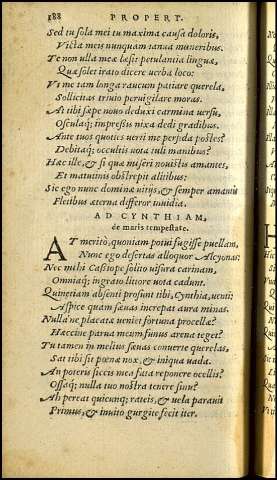 188 PROPERT.
Sed tu sola mei tu maxima causa doloris,
Victa meis nunquam ianua muneribus.
Te non ulla meæ læsit petulantia linguæ,
Quæ solet irato dicere verba loco:
Vt me tam longa raucum patiare querela,
Sollicitas triuio peruigilare moras.
At tibi sæpe nouo deduxi carmina versu,
Osculaq; impressis nixa dedi gradibus.
Ante tuos quoties verti me perfida postes?
Debitaq; occultis vota tuli manibus?
Hæc ille, & si quæ miseri nouistis amantes,
Et matutinis obstrepit alitibus:
Sic ego nunc dominæ vitijs, & semper amantis
Fletibus æterna differor inuidia.
AD CYNTHIAM,
de maris tempestate.
AT merito, quoniam potui fugisse puellam,
Nunc ego desertas alloquor Alcyonas:
Nec mihi Casiope solito visura carinam,
Omniaq; ingrato littore vota cadunt.
Quinetiam absenti prosunt tibi, Cynthia, venti:
Aspice quam sæuas increpat aura minas.
Nulla ne placatæ veniet fortuna procellæ?
Hæccine parua meum funus arena teget?
Tu tamen in melius sæuas conuerte querelas,
Sat tibi sit pœna nox, & iniqua vada.
An poteris siccis mea fata reponere ocellis?
Ossaq; nulla tuo nostra tenere sinu?
Ah pereat quicunq; rateis, & vela parauit
Primus, & inuito gurgite fecit iter.